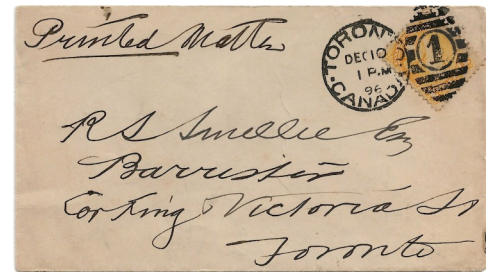 Printed Matter
TORONTO
DEC 10
1 PM
96
CANADA
1
R S Smellie Esq
Barrister
Cor King Victoria St
Toronto